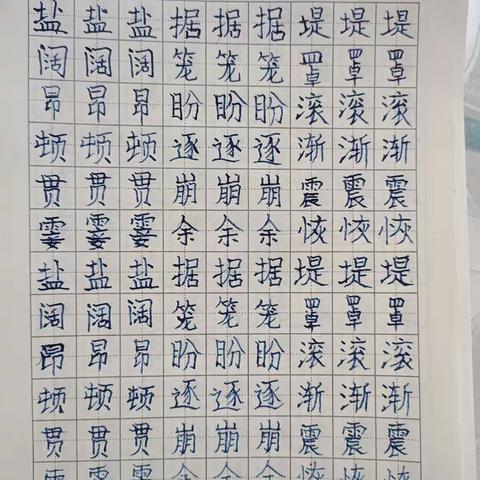 盐盐盐据据据堤堤堤
阔阔阔笼笼笼罩罩罩
昂昂昂盼盼盼滚滚滚
顿顿顿逐逐逐渐渐渐
贯贯贯崩崩崩震震震
霎霎霎余余余恢恢恢
盐盐盐据据据堤堤堤
阔阔阔笼笼笼罩罩罩
昂昂昂盼盼盼滚滚滚
顿顿顿逐逐逐渐渐渐
贯贯贯崩崩崩震震震
霎霎霎余余余恢恢恢